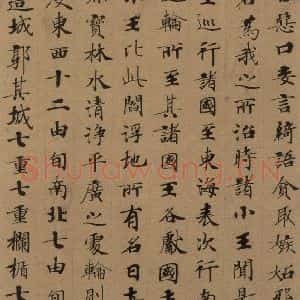 惡口妄言綺語貪取嫉妬邪
為我之所治時諸小王聞是
王巡行諸國至東海表次行
輪所至其諸國王各獻國土
王此閻浮地所有名曰土
寶林水清淨平廣之處輪則
度東西十二由旬南北七由旬
造城郭其城七重七重欄楯七
Shufawang.CN